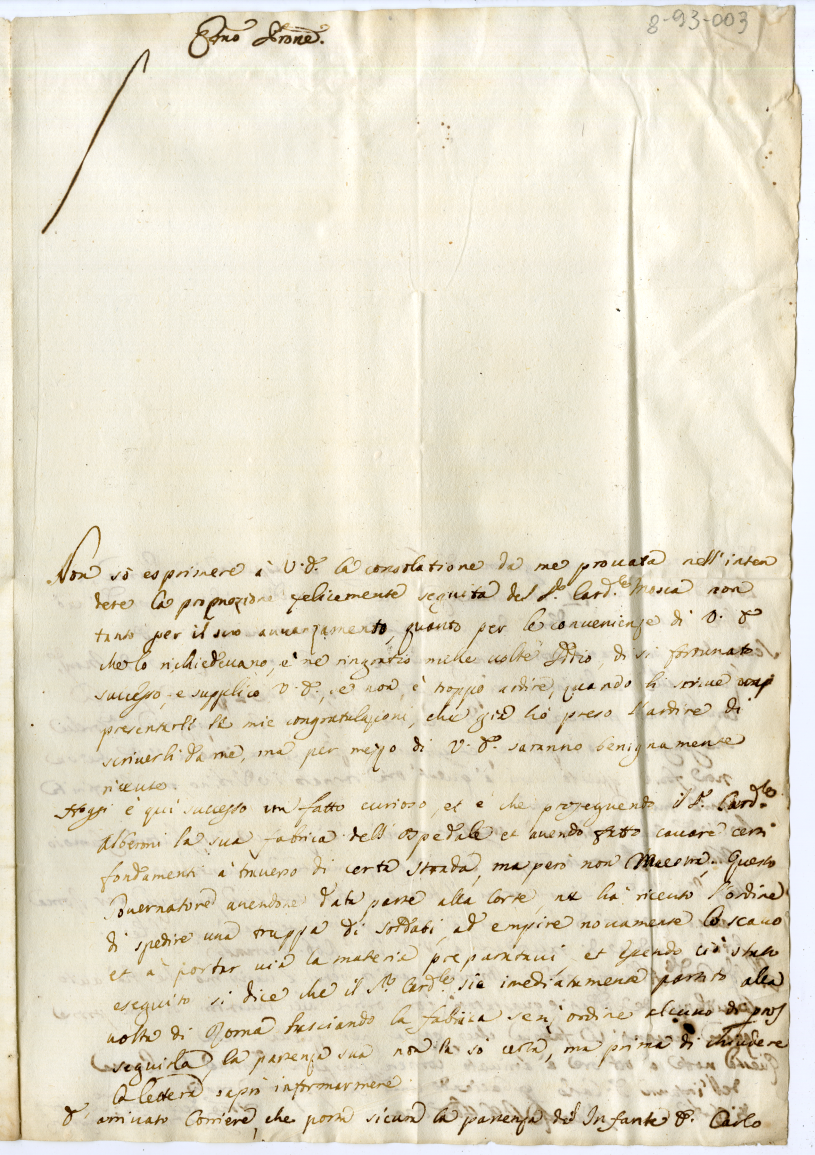 8-93-003
Emo Prone.
Non sò esprimere à V. E. la consolatione da me prouata nell'inten
dere la promozione felicemente seguita del Sr. Card.le Mosca non
tanto per il suo auuanzamento, quanto per le conuenienze di V. E.
che lo richiedeuano, e ne ringratio mille uolte Iddio, di si fortunato
successo, e supplico V. E., se non è troppo ardire, quando li scriue
presentarli le mie congratulazioni, che già hò preso l'ardire di
scriuerli da me, ma per mezo di V. E. saranno benignamente
riceuute
Hoggi è qui successo un fatto curioso, et è che proseguendo il Sr. Card.le
Alberoni la sua fabrica dell Ospedale et auendo fatto cauare certi
fondamenti à trauerso di certa strada, ma però non Maestra, Questo
Gouernatore auendone data parte alla Corte ne hà riceuto l'ordine
di spedire una truppa di soldati, ad empire nouamente lo scauo
et à portar uia la materia preparataui et essendo ciò stato
eseguito si dice che il Sr. Card.le sia imediatamente partito alla
uolta di Roma lasciando la fabrica senz'ordine alcuno di pros
seguirla la partenza sua non la sò certa, ma prima di chiudere
la lettera saprò informarmene
È arriuato Corriere, che porta sicura la partenza del Infante D. Carlo